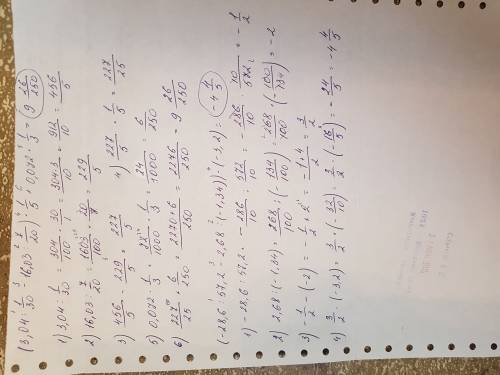 (3,04 : 1/30 - 16,03 : 7/20) · 1/5 + 0,072 · 1/3 = 9 26/250
1) 3,04 : 1/30 = 304/100 · 30/1 = 304·3/10 = 912/10 = 456/5
2) 16,03 : 7/20 = 1603/100 · 20/7 = 229/5
3) 456/5 - 229/5 = 227/5
4) 227/5 · 1/5 = 227/25
5) 0,072 · 1/3 = 72/1000 · 1/3 = 24/1000 = 6/250
6) 227/25 + 6/250 = 2270+6/250 = 2276/250 = 9 26/250
(-28,6 : 57,2 - 2,68 : (-1,34)) : (-3,2) = -4 4/5
1) -28,6 : 57,2 = -286/10 : 572/10 = -286/10 · 10/572 = -1/2
2) 2,68 : (-1,34) = 268/100 : (-134/100) = 268/100 · (-100/134) = -2
3) -1/2 - (-2) = -1/2 + 2 = -1+4/2 = 3/2
4) 3/2 · (-3,2) = 3/2 · (-32/10) = 3/2 · (-16/5) = -24/5 = -4 4/5